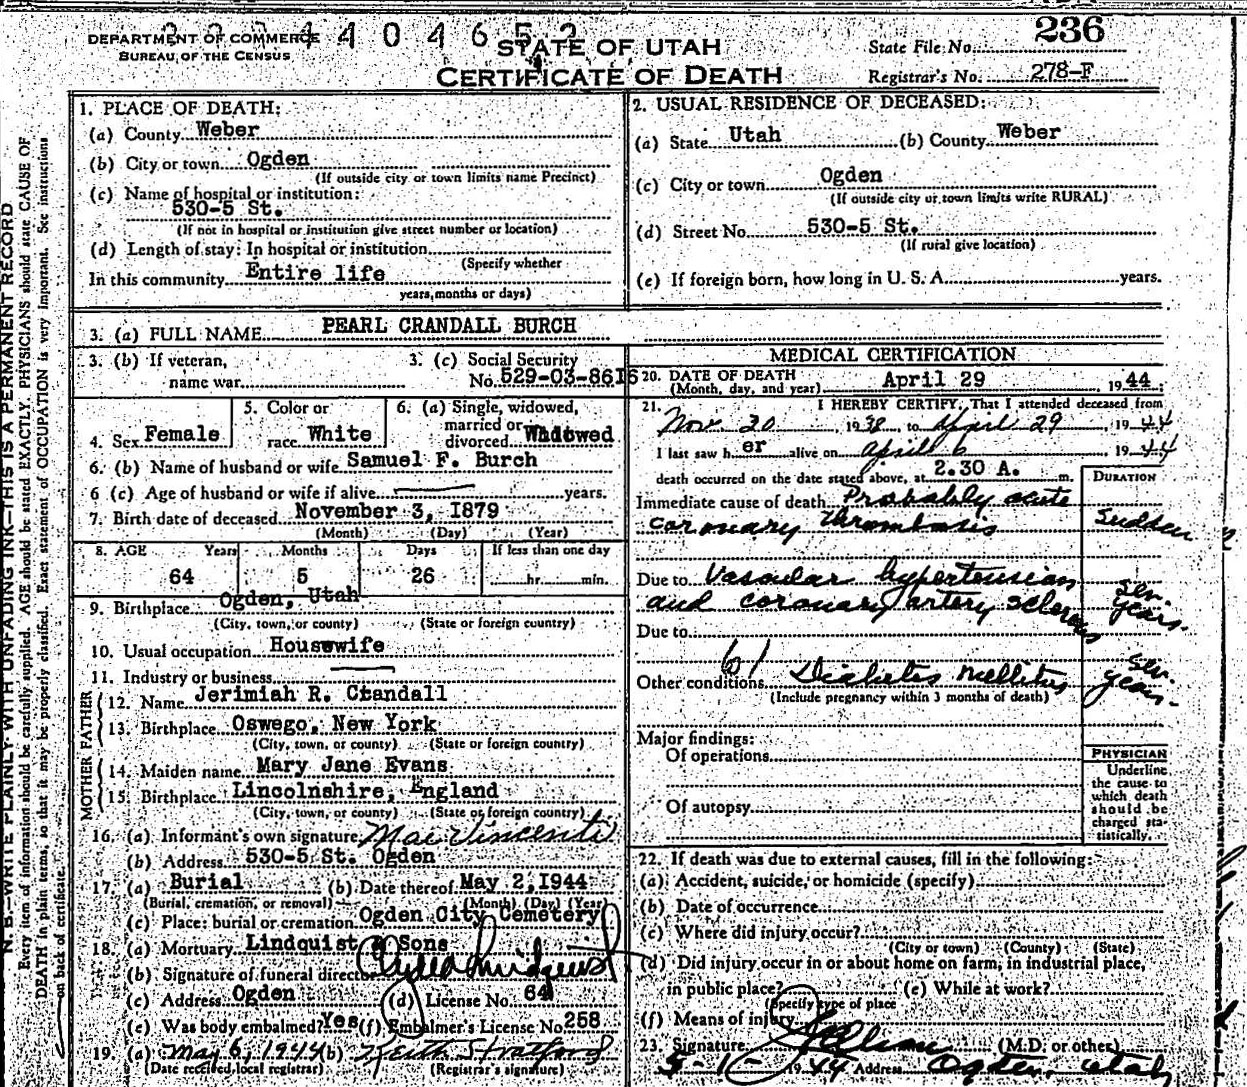 DEPARTMENT OF COMMERCE
BUREAU OF THE CENSUS
STATE OF UTAH
CERTIFICATE OF DEATH
State File No. 236
Registrar's No. 278-F
N. B.—WRITE PLAINLY WITH UNFADING INK—THIS IS A PERMANENT RECORD
Every item of information should be carefully supplied. AGE should be stated EXACTLY. PHYSICIANS should state CAUSE OF
DEATH in plain terms, so that it may be properly classified. Exact statement of OCCUPATION is very important. See instructions
on back of certificate.
1. PLACE OF DEATH:
(a) County Weber
(b) City or town Ogden
(If outside city or town limits name Precinct)
(c) Name of hospital or institution:
530-5 St.
(If not in hospital or institution give street number or location)
(d) Length of stay: In hospital or institution
(Specify whether
In this community Entire life
years, months or days)
2. USUAL RESIDENCE OF DECEASED:
(a) State Utah (b) County Weber
(c) City or town Ogden
(If outside city or town limits write RURAL)
(d) Street No. 530-5 St.
(If rural give location)
(e) If foreign born, how long in U. S. A. years.
3. (a) FULL NAME PEARL CRANDALL BURCH
3. (b) If veteran,
name war
3. (c) Social Security
No. 529-03-8616
4. Sex Female
5. Color or
race White
6. (a) Single, widowed,
married or
divorced Widowed
6. (b) Name of husband or wife Samuel F. Burch
6 (c) Age of husband or wife if alive years.
7. Birth date of deceased November 3, 1879
(Month) (Day) (Year)
8. AGE Years Months Days If less than one day
64 5 26 hr. min.
9. Birthplace Ogden, Utah
(City, town, or county) (State or foreign country)
10. Usual occupation Housewife
11. Industry or business
FATHER
12. Name Jerimiah R. Ctandall
13. Birthplace Oswego, New York
(City, town, or county) (State or foreign country)
MOTHER
14. Maiden name Mary Jane Evans
15. Birthplace Lincolnshire, England
(City, town, or county) (State or foreign country)
16. (a) Informant's own signature Mae Vincenti
(b) Address 530-5 St. Ogden
17. (a) Burial (b) Date thereof May 2, 1944
(Burial, cremation, or removal) (Month) (Day) (Year)
(c) Place: burial or cremation Ogden City Cemetery
18. (a) Mortuary Lindquist & Sons
(b) Signature of funeral director
(c) Address Ogden (d) License No. 64
(e) Was body embalmed? Yes (f) Embalmer's License No. 258
19. (a) May 6, 1944 (b) Keith Stratford
(Date received local registrar) (Registrar's signature)
MEDICAL CERTIFICATION
20. DATE OF DEATH April 29, 1944
(Month, day, and year)
21. I HEREBY CERTIFY, That I attended deceased from
Nov. 30, 1938, to April 29, 1944
I last saw her alive on April 6, 1944
death occurred on the date stated above, at 2.30 A. m.
DURATION
Immediate cause of death Probably acute
coronary thrombosis Sudden
Due to Vascular hypertension sev.
and coronary artery sclerosis years.
Due to
61
Other conditions Diabetes mellitus sev. years.
(Include pregnancy within 3 months of death)
Major findings:
Of operations
Of autopsy
PHYSICIAN
Underline
the cause to
which death
should be
charged sta-
tistically.
22. If death was due to external causes, fill in the following:
(a) Accident, suicide, or homicide (specify)
(b) Date of occurrence
(c) Where did injury occur?
(City or town) (County) (State)
(d) Did injury occur in or about home on farm, in industrial place,
in public place? (e) While at work?
(Specify type of place
(f) Means of injury
23. Signature (M.D. or other)
5-1-1944 Address Ogden, Utah